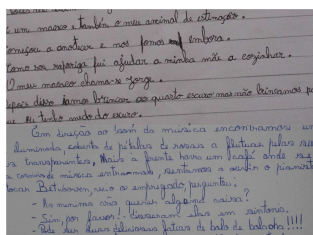 um macaco e também o meu animal de estimação.
Começou a anoitecer e nós fomos embora.
Como sou rapariga fui ajudar a minha mãe a cozinhar.
O meu macaco chama-se Jorge.
Depois disso fomos brincar ao quarto escuro mas não brincamos
eu tenho medo do escuro.
Em direção ao som da música encontramos
iluminada, coberta de pétalas de rosas a flutuar pelas
transparentes, mais à frente havia um café onde
de música entramos, sentamos a ouvir o pianista
tocar Bethoven, veio o empregado, perguntou:
- As meninas não querem alguma coisa?
- Sim, por favor! - disseram elas em sintonia.
duas deliciosas fatias de bolo de bolacha!!!!